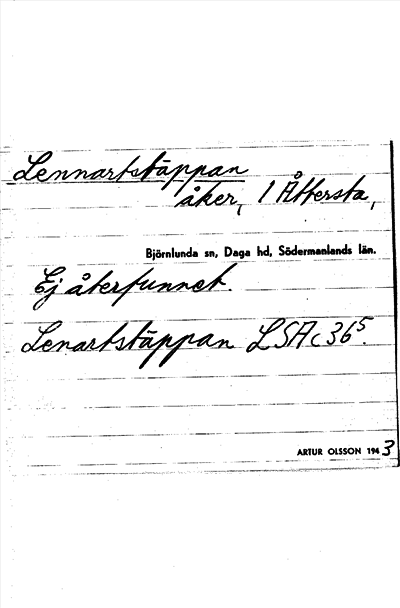 Lennartstäppan
åker, 1 Åttersta,
Björnlunda sn, Daga hd, Södermanlands län.
Ej återfunnet.
Lenartstäppan LSA c 36⁵.
ARTUR OLSSON 1943